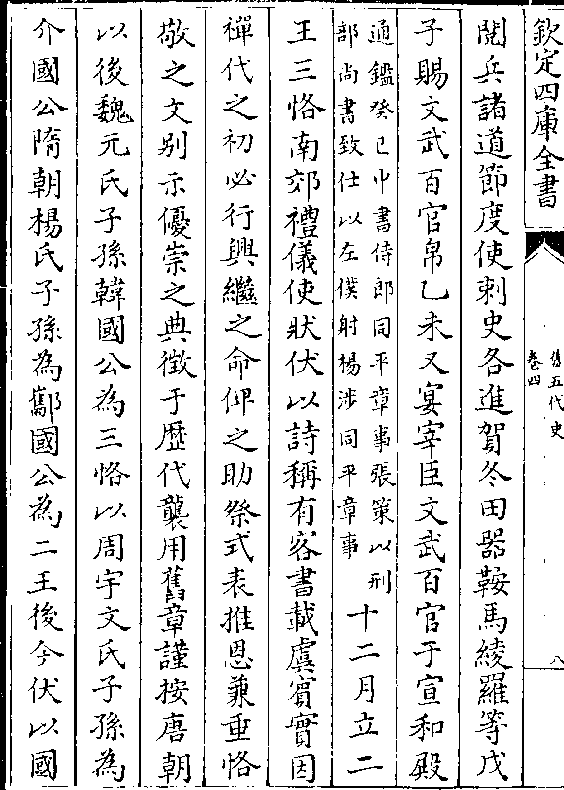 欽定四庫全書
舊五代史
卷四
八
閱兵諸道節度使刺史各進賀冬田器鞍馬綾羅等戊
子賜文武百官帛乙未又宴宰臣文武百官于宣和殿
通鑑癸巳中書侍郎同平章事張策以刑
部尚書致仕以左僕射楊涉同平章事
十二月立二
王三恪南郊禮儀使狀伏以詩稱有客書載虞賓實因
禪代之初必行興繼之命俾之助祭式表推恩兼垂恪
敬之文别示優崇之典徵于歴代襲用舊章謹按唐朝
以後魏元氏子孫韓國公為三恪以周宇文氏子孫為
介國公隋朝楊氏子孫為酅國公為二王後今伏以國